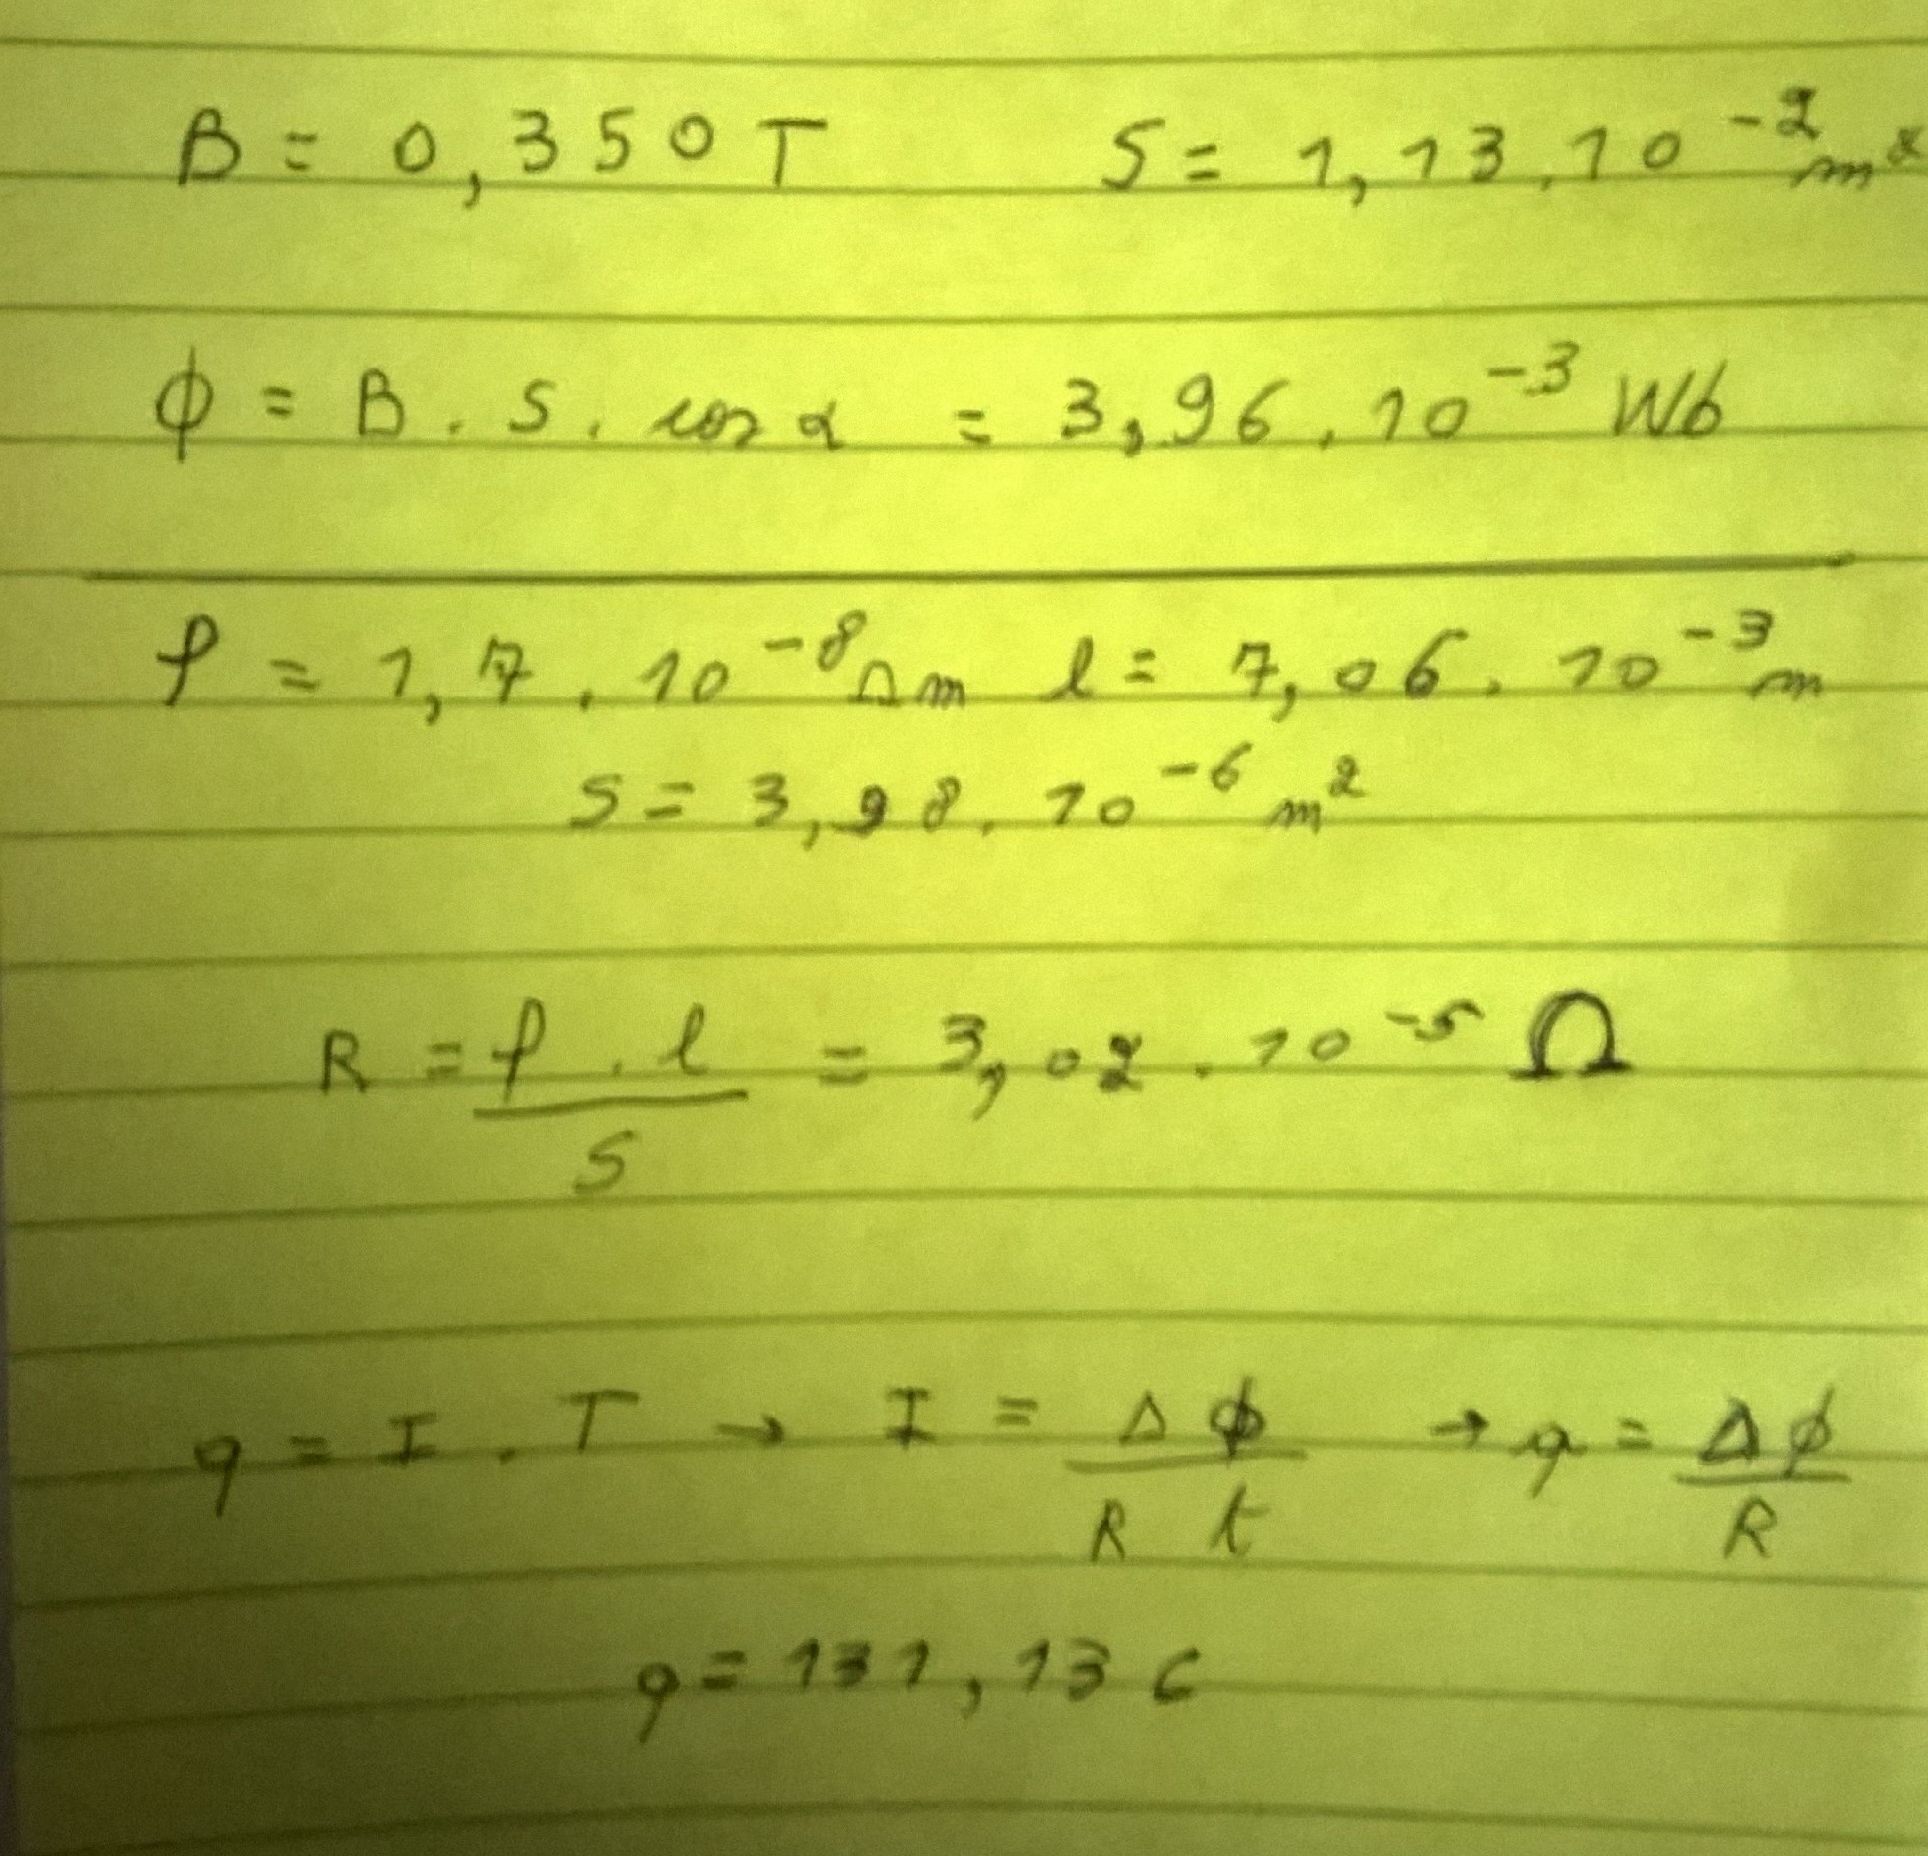 B = 0,350 T S = 1,13.10⁻² m²
ϕ = B . S . cos α = 3,96 . 10⁻³ Wb
ρ = 1,7 . 10⁻⁸ Ωm l = 7,06 . 10⁻³ m
S = 3,98 . 10⁻⁶ m²
R = ρ . l / S = 3,02 . 10⁻⁵ Ω
q = I . T → I = Δϕ / R t → q = Δϕ / R
q = 131,13 C